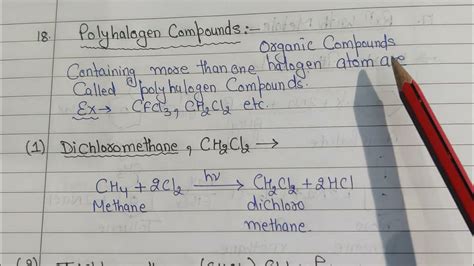 18. Polyhalogen Compounds:-
Organic Compounds
Containing more than one halogen atom are
Called polyhalogen Compounds.
Ex→ CFCl3, CH2Cl2 etc.
(1) Dichloromethane, CH2Cl2 →
CH4 + 2Cl2 hν→ CH2Cl2 + 2HCl
Methane dichloro
methane.